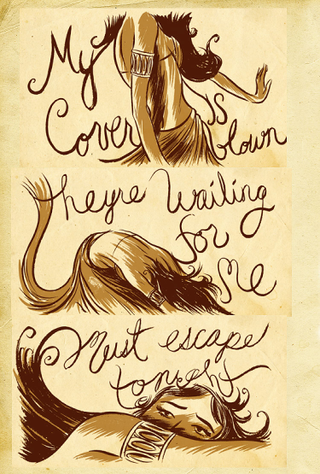 My
Cover is
blown
theyre Wailing
for
Me
Must escape
tonight